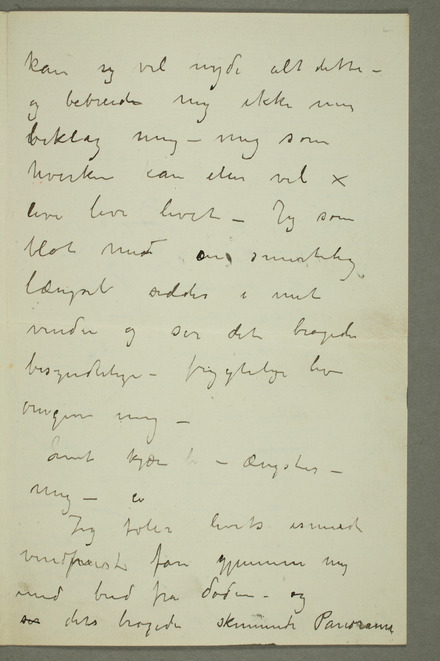 kan og vil nyde alt dette –
og bebreid mig ikke men
beklag mig – mig som
hverken can eller vil x
leve leve livet – Jeg som
blot med en smertelig
længsel sidder i mit
vindu og ser det brogede
besyndelige – frygtelige liv
omgive mig –
Livet kjær – ængster –
mig –
Jeg føler livets isnende
vindpust fare gjennem mig
med bud fra døden – og
dets brogede skinnende Panorama